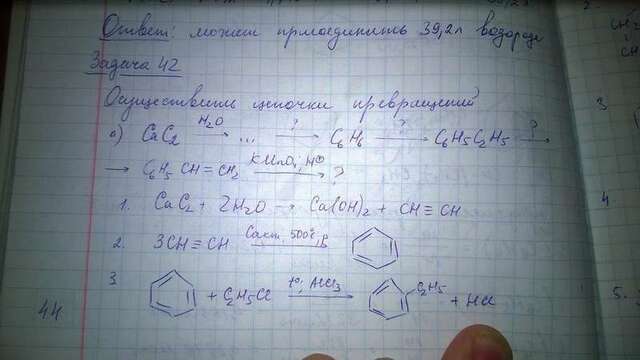 Ответ: может присоединить 39,2л водорода
Задача 42
Осуществить цепочки превращений
а) CaC2 H2O → ... ? → C6H6 ? → C6H5C2H5 ? →
→ C6H5CH=CH2 KMnO4, H⊕ → ?
1. CaC2 + 2H2O → Ca(OH)2 + CH≡CH
2. 3CH≡CH Cакт, 500°C, p
3 + C2H5Cl t°; AlCl3 → C2H5 + HCl
44
3
4
5.